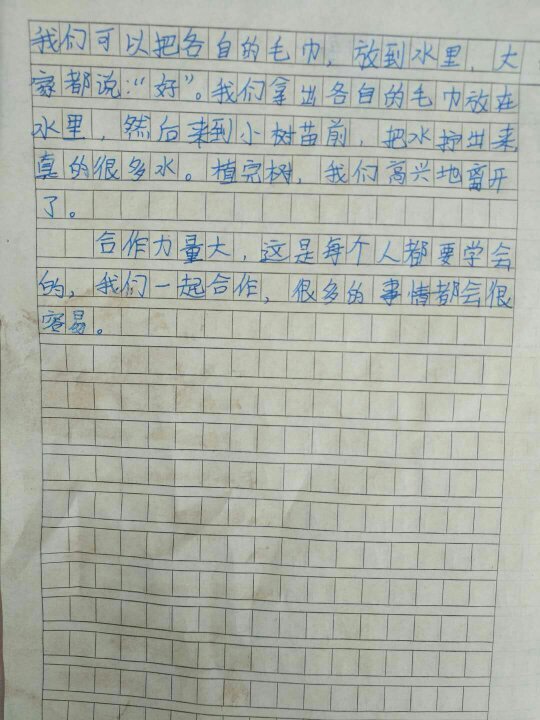 我们可以把各自的毛巾，放到水里，大
家都说：“好”。我们拿出各自的毛巾放在
水里，然后来到小树苗前，把水拧出来
真的很多水。植完树，我们高兴地离开
了。
合作力量大，这是每个人都要学会
的，我们一起合作，很多的事情都会很
容易。